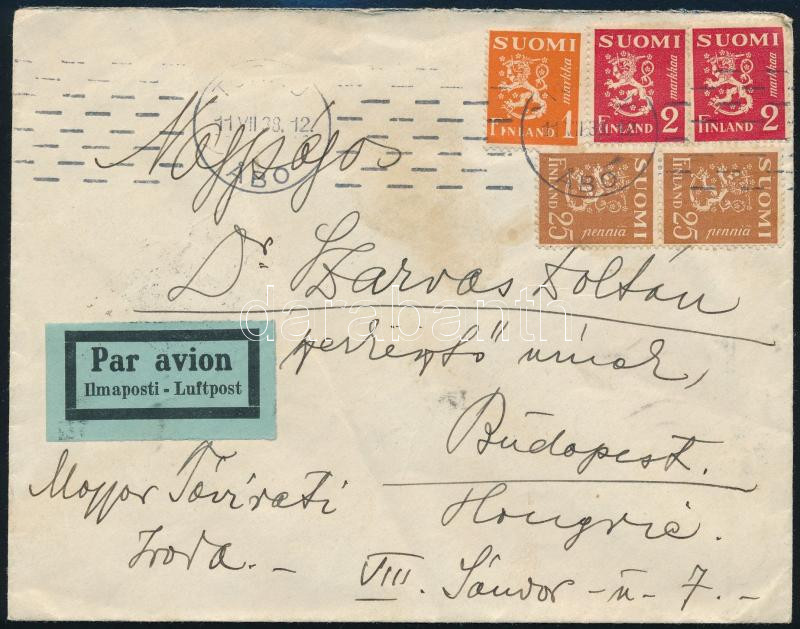 SUOMI
markka
1
FINLAND 1
SUOMI
markkaa
FINLAND 2
SUOMI
markkaa
FINLAND 2
11 VII 38. 12.
ÅBO
ÅBO
SUOMI
FINLAND
25 pennia
SUOMI
FINLAND
25 pennia
Nagyságos
Dr. Szarvas Zoltán
darabanth
úrnak,
Budapest.
Hongrie.
VIII. Sándor-u-7.-
Par avion
Ilmaposti - Luftpost
Magyar Távirati
Iroda.-